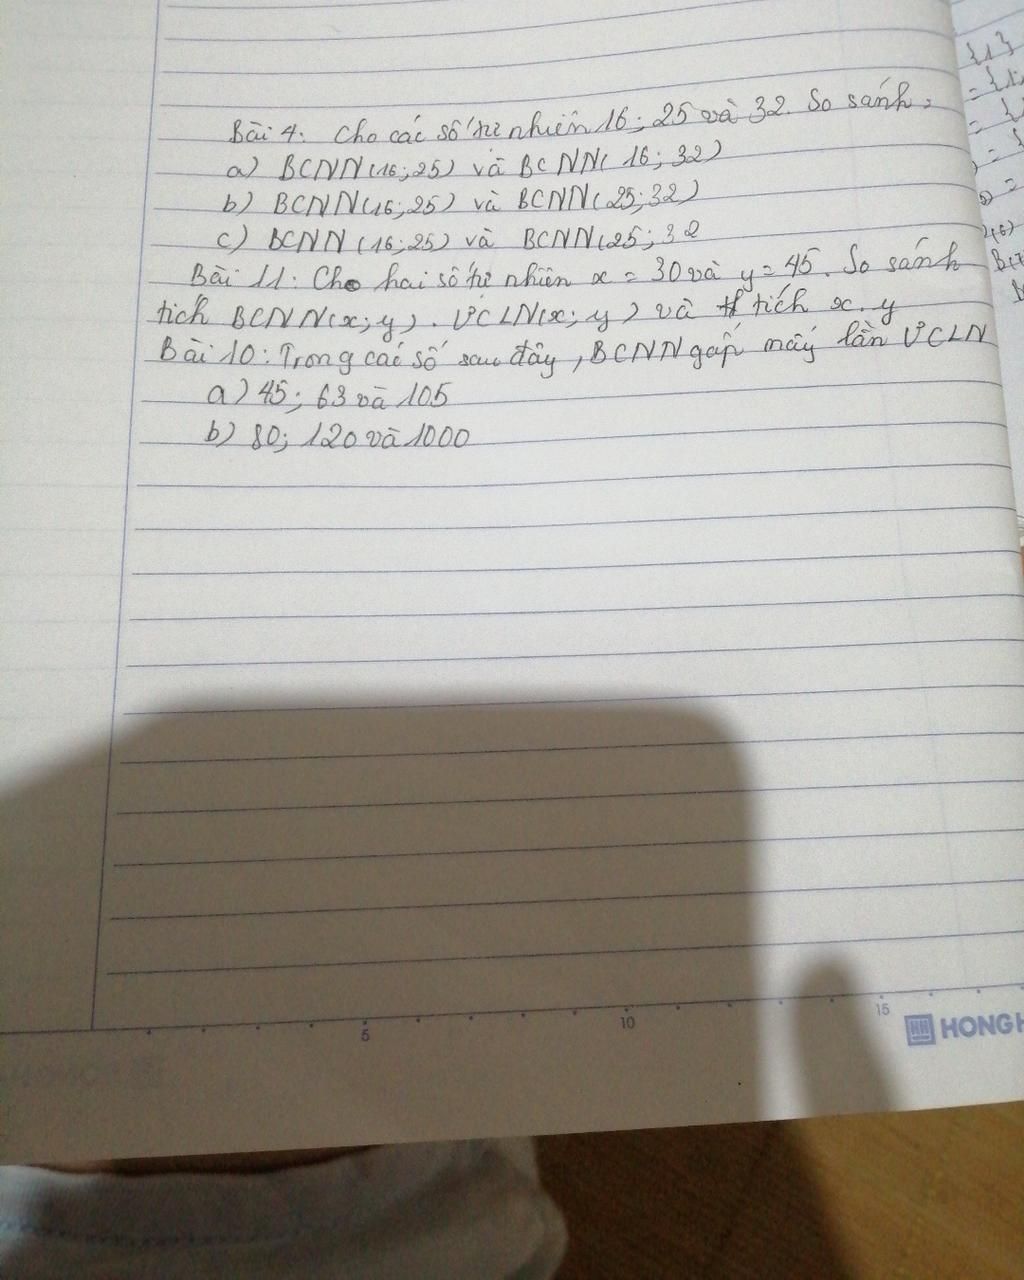 Bài 4: Cho các số tự nhiên 16; 25 và 32. So sánh:
a) BCNN(16;25) và BCNN(16;32)
b) BCNN(16;25) và BCNN(25;32)
c) BCNN(16;25) và BCNN(25;32
Bài 11: Cho hai số tự nhiên x = 30 và y = 45. So sánh
tích BCNN(x;y). ƯCLN(x;y) và tích x.y
Bài 10: Trong các số sau đây, BCNN gấp mấy lần ƯCLN
a) 45; 63 và 105
b) 80; 120 và 1000
{1}
5 10 15
HONG H